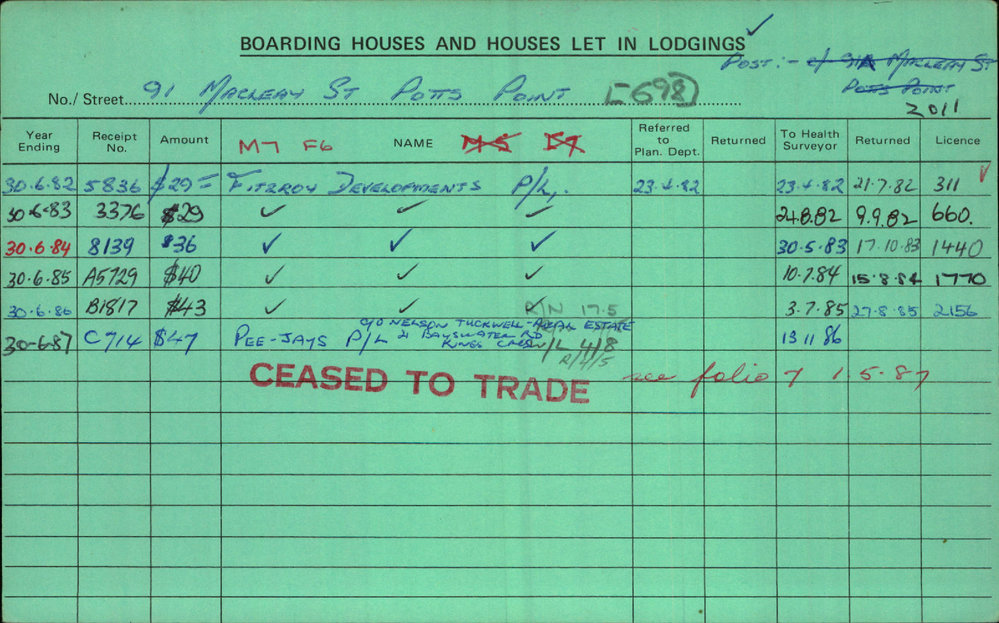 BOARDING HOUSES AND HOUSES LET IN LODGINGS ✓
POST :- c/ 91A MACLEAY ST
POTTS POINT
2011
No./ Street 91 MACLEAY ST POTTS POINT E698
Year Ending Receipt No. Amount M7 F6 NAME M5 Referred to Plan. Dept. Returned To Health Surveyor Returned Licence
30.6.82 5836 $29= FITZROY DEVELOPMENTS P/L. 23.4.82 23.4.82 21.7.82 311 ✓
30.6.83 3376 $29 ✓ ✓ ✓ 24.8.82 9.9.82 660.
30.6.84 8139 $36 ✓ ✓ ✓ 30.5.83 17.10.83 1440
30.6.85 A5729 $40 ✓ ✓ ✓ 10.7.84 15.8.84 1770
30.6.86 B1817 $43 ✓ ✓ ✓ R/N 17.5 3.7.85 27.8.85 2156
C/O NELSON TUCKWELL REAL ESTATE
30-6-87 C714 $47 PEE-JAYS P/L 21 BAYSWATER RD 13 11 86
KINGS CROSS
/L 4/8
R/
CEASED TO TRADE see folio 7 1.5.87